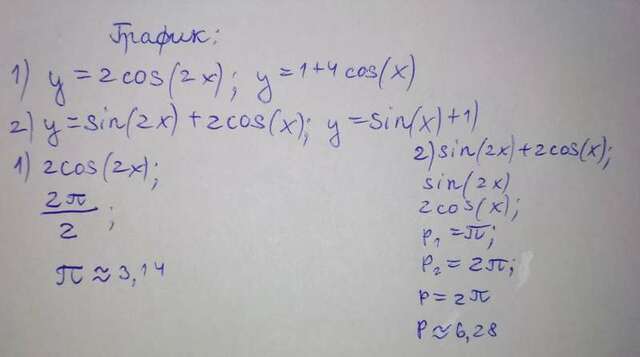 График:
1) y = 2cos(2x); y = 1+4cos(x)
2) y = sin(2x) + 2cos(x); y = sin(x)+1)
1) 2cos(2x);
2π/2;
π ≈ 3,14
2) sin(2x)+2cos(x);
sin(2x)
2cos(x);
P₁ = π;
P₂ = 2π;
P = 2π
P ≈ 6,28